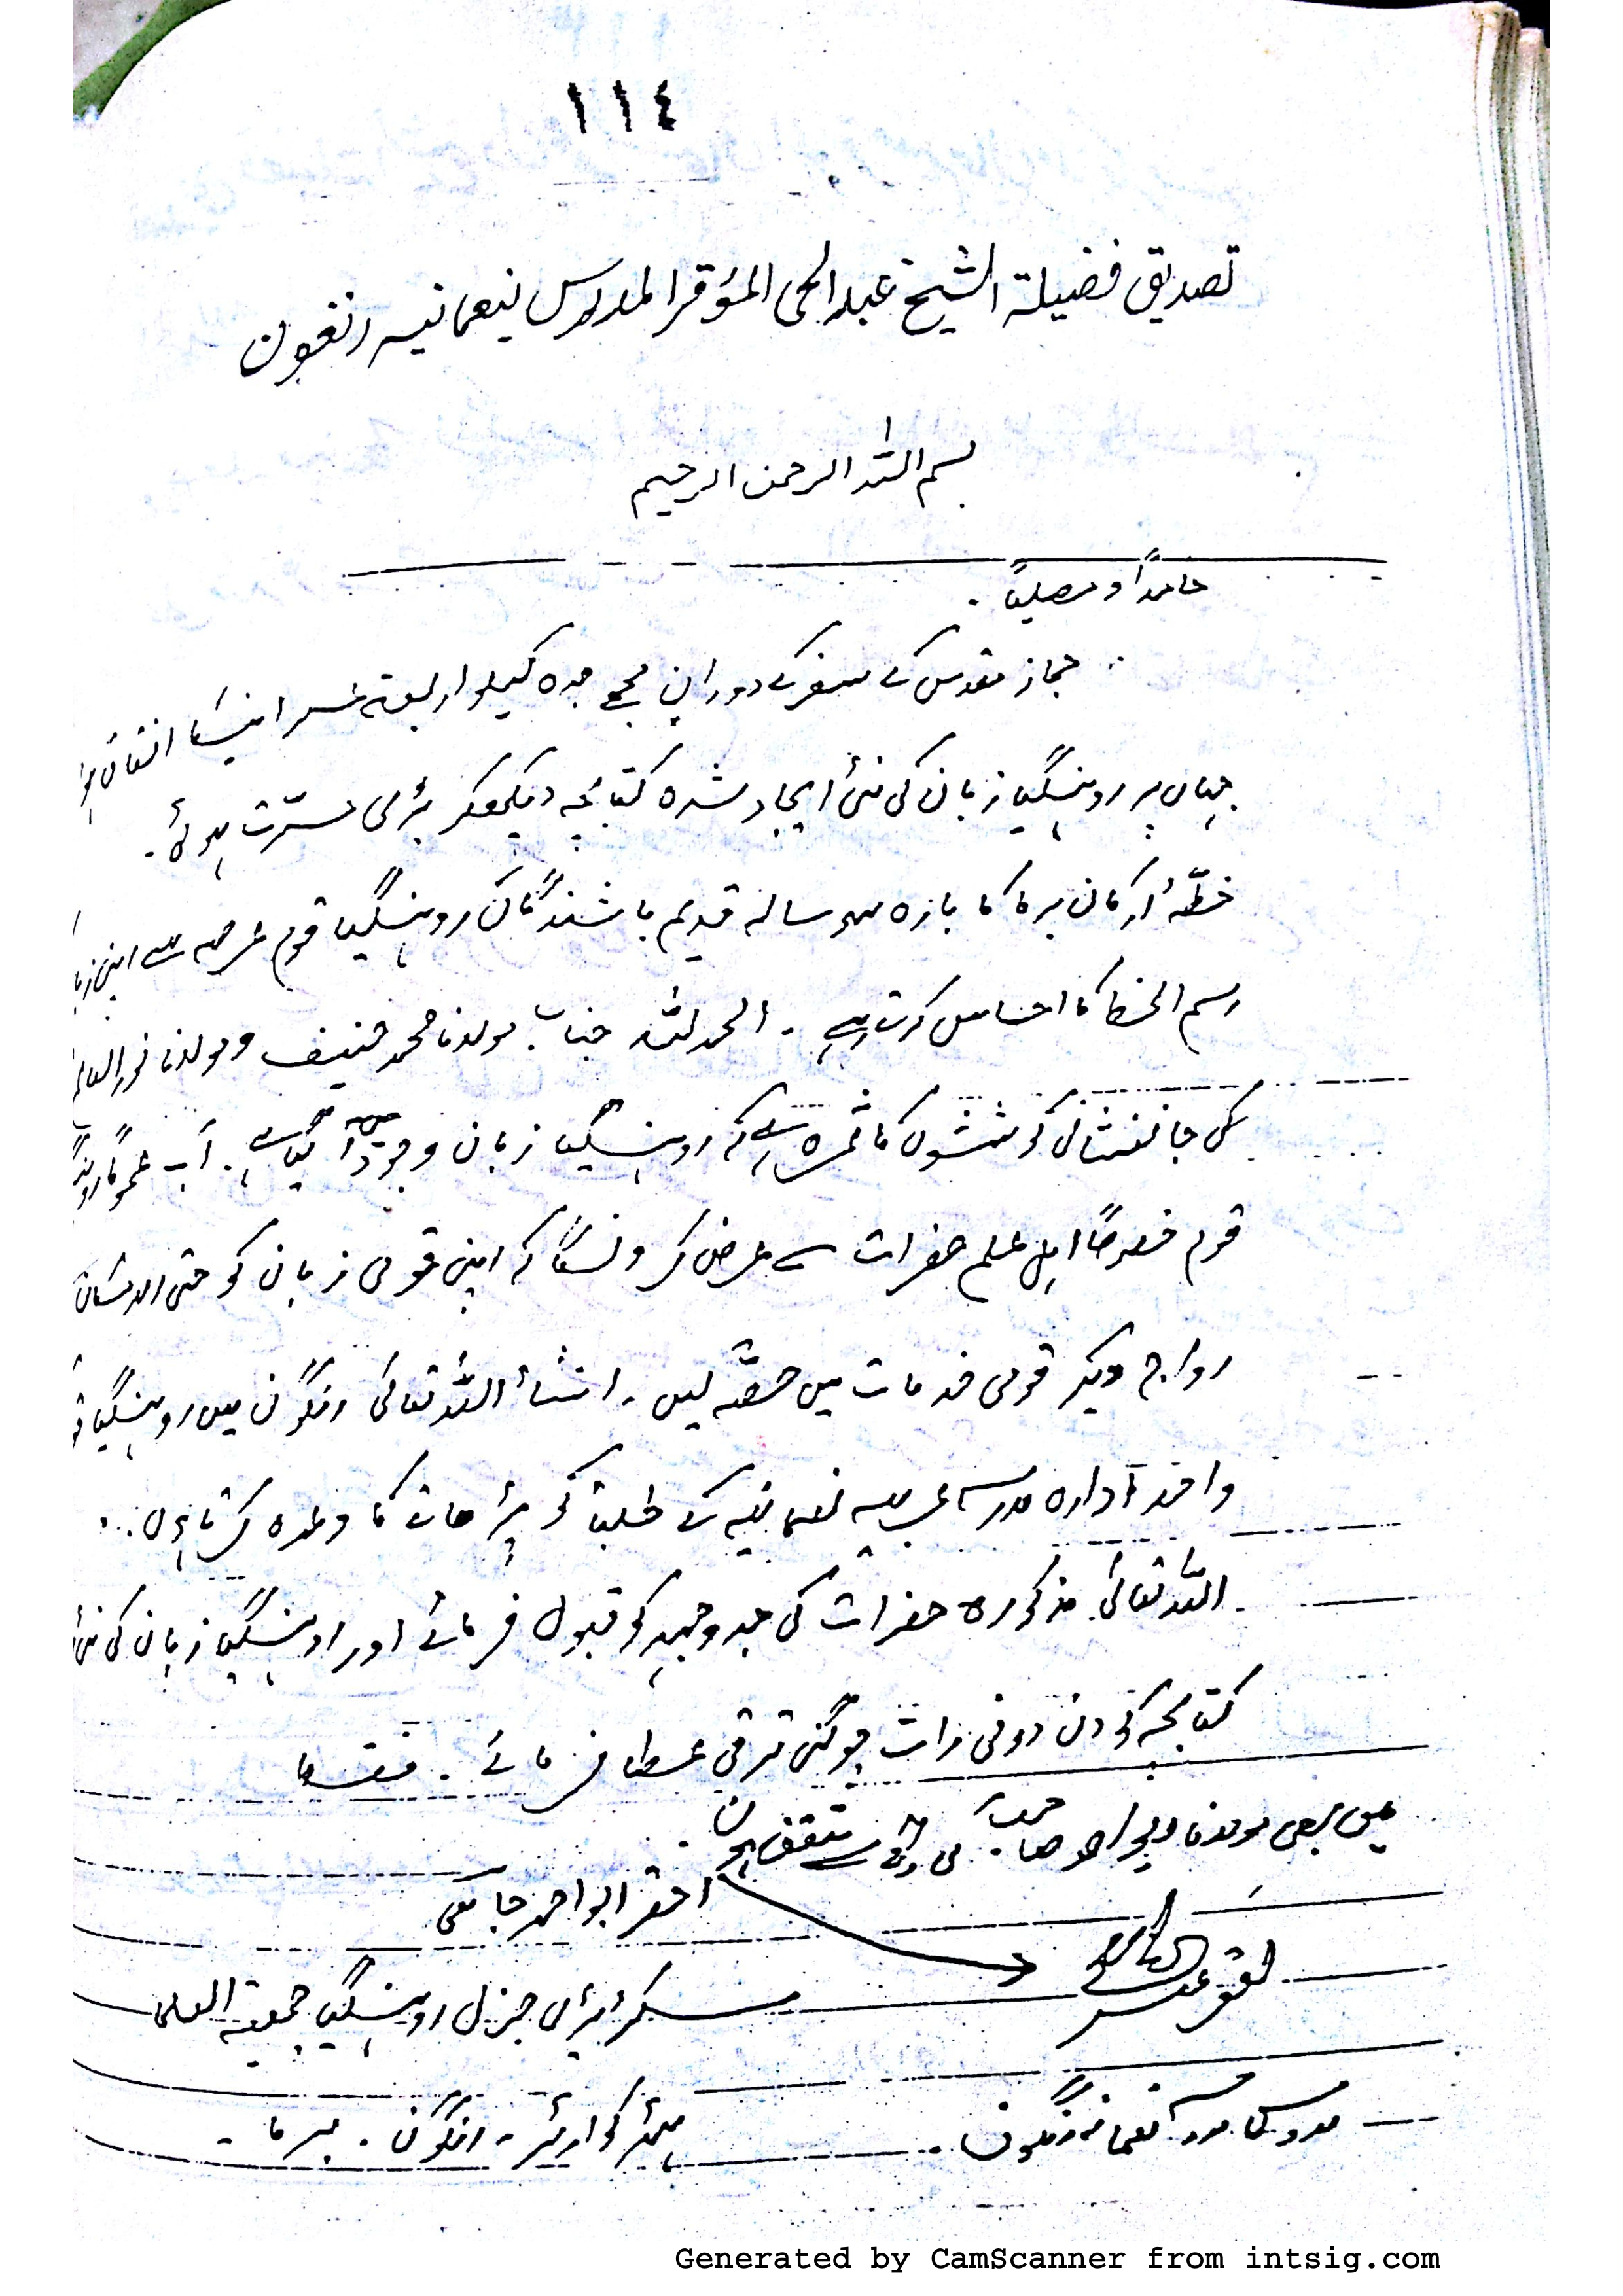 ١١٤
تصدیق فضیلة الشیخ عبدالحی المؤقر المدرس نیعمانیہ رنغون
بسم اللہ الرحمن الرحیم
حامداً و مصلیا ۔
حجاز مقدس کے سفر کے دوران مجھے جدہ کیلو اربعة عشر آنیکا اتفاق ہوا
جہاں پر روہنگیا زبان کی نئی ایجاد شدہ کتابچہ دیکھکر بڑی مسرّت ہوئی ۔
خطّۂ ارکان برما کا بارہ سو سالہ قدیم باشندگان روہنگیا قوم عرصہ سے اپنی
رسم الخط کا احساس کرتے رہے ۔ الحمد للہ جناب مولانا محمد حنیف و مولانا نور العالم
کی جانفشانی کوششوں کا ثمرہ ہے کہ روہنگیا زبان وجود میں آ گیا ہے ۔ اب عموماً
قوم خصوصًا اہل علم حضرات سے عرض کرونگا کہ اپنی قومی زبان کو حتی الامکان
رواج دیکر قومی خدمات میں حصّہ لیں ۔ انشأ اللہ تعالیٰ رنگون میں روہنگیا
واحد ادارہ مدرسہ عربیہ نعمانیہ کے طلبة کو پڑھانے کا وعدہ کرتا ہوں ۔
اللہ تعالیٰ مذکورہ حضرات کی جد وجہد کو قبول فرمائے اور روہنگیا زبان کی نئی
کتابچہ کو دن دونی رات چوگنی ترقی عطا فرمائے ۔ فقط
میں بھی مولانا ابو احمد صاحب کی رائے سے متفق ہوں ۔
احقر ابو احمد جامعی
احقر عبد الحی
سکریٹری جنرل روہنگیا جمعیة العلماء
مدرس مدرسہ نعمانیہ رنگون ۔
ہیڈ کوارٹر ۔ رنگون ۔ برما ۔
Generated by CamScanner from intsig.com